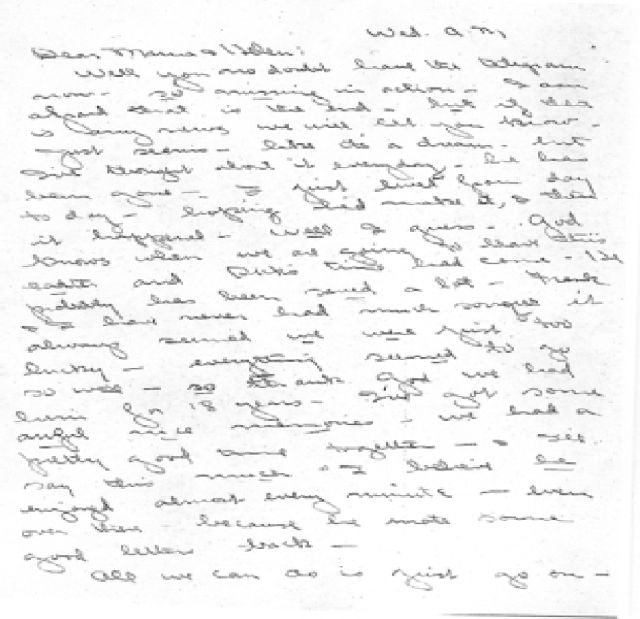 Wed. A.M
Dear Mama & Helen:
Well you no doubt have the telegram
now - so missing in action - I am
afraid that is the end - but if there
is any news we will let you know -
just seems - like it's a dream - but
I've thought about it everyday - he has
been gone - I just lived from day
to day - hoping he'd make it, & then
it happened - Well I guess - God
knows when we are going to leave this
earth and Dicks time had come - He
probably has been saved a lot - Frank
& I have never had much sorrow it
always seemed we were just too
lucky - everything seemed to go
so well - so thank God we had
him for 18 years - I've got some
awful nice memories - we had a
pretty good time together - & I'll
say this much - I believe he
enjoyed almost every minute - even
over there - because he wrote some
good letters back -
All we can do is just go on -